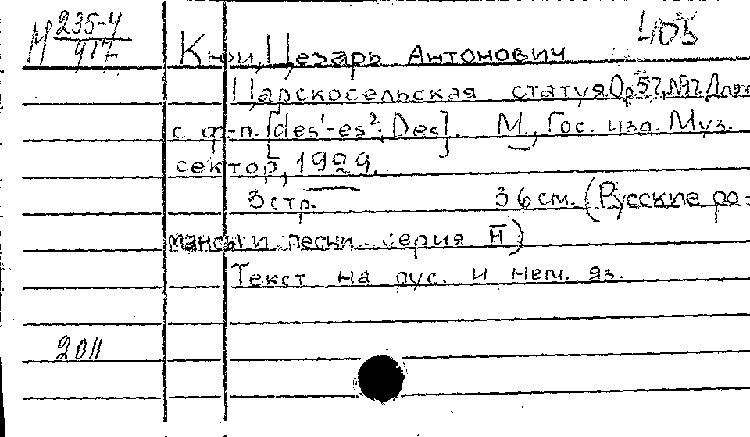 М 235-4
917
405
Кюи, Цезарь Антонович
Царскосельская статуя. Op. 57, №17. Для
с ф-п. [des¹-es²; Des]. М., Гос. изд. Муз.
сектор, 1929.
3 стр. 36 см. (Русские ро-
мансы и песни. Серия II)
Текст на рус. и нем. яз.
2011